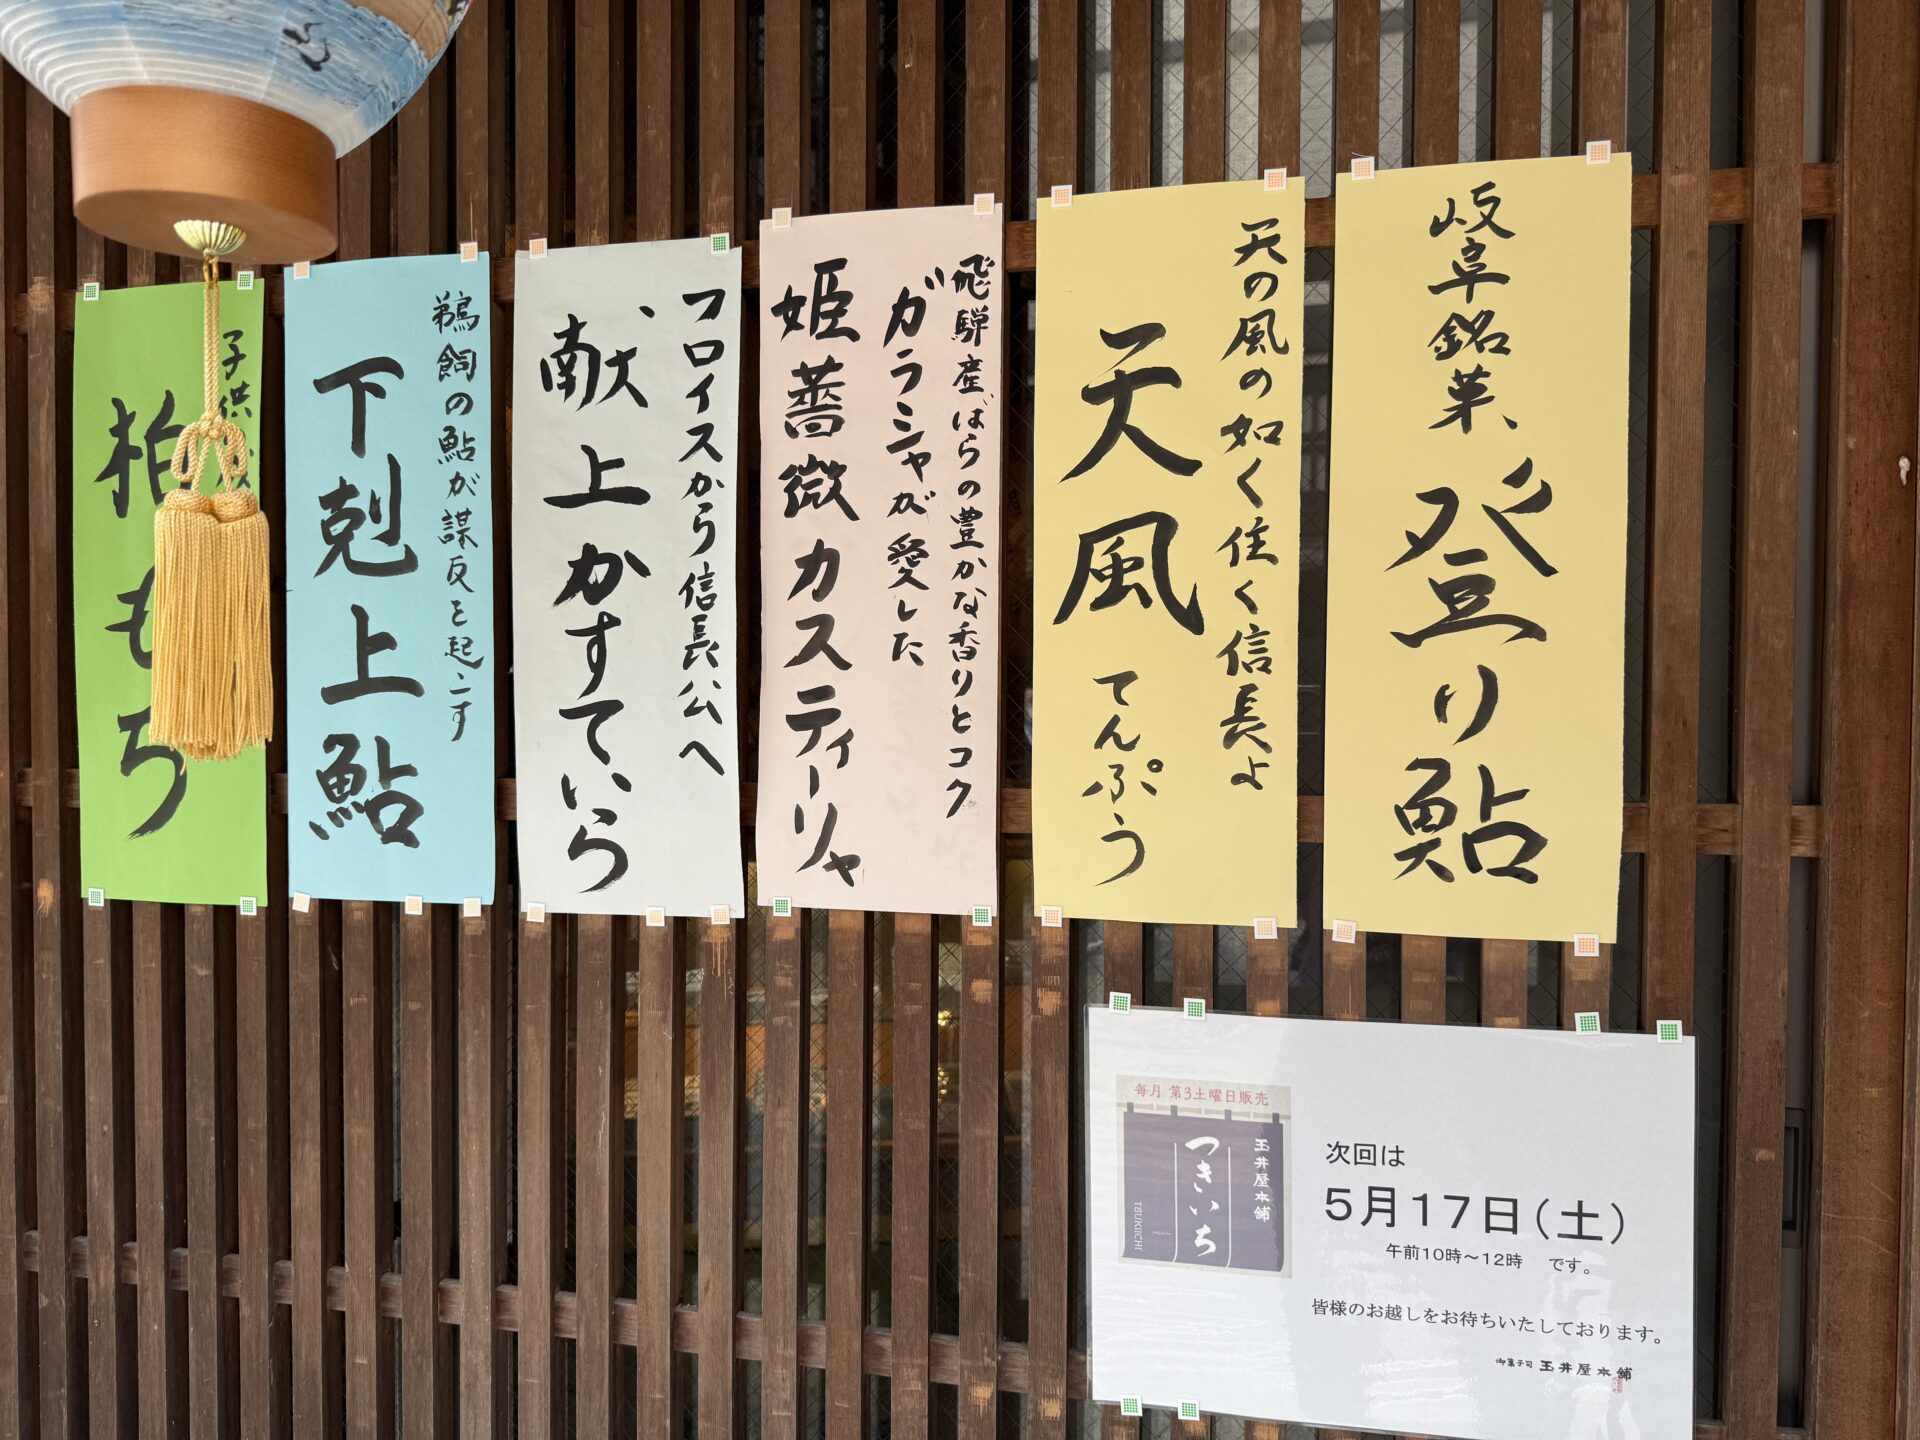 岐阜銘菓、
登り鮎
天の風の如く往く信長よ
天風てんぷう
飛騨産ばらの豊かな香りとコク
ガラシャが愛した
姫薔薇カスティーリャ
フロイスから信長公へ
献上かすていら
鵜飼の鮎が謀反を起こす
下剋上鮎
子供
柏もち
毎月 第3土曜日販売
玉井屋本舗
つきいち
TSUKIICHI
次回は
5月17日(土)
午前10時～12時 です。
皆様のお越しをお待ちいたしております。
御菓子司 玉井屋本舗